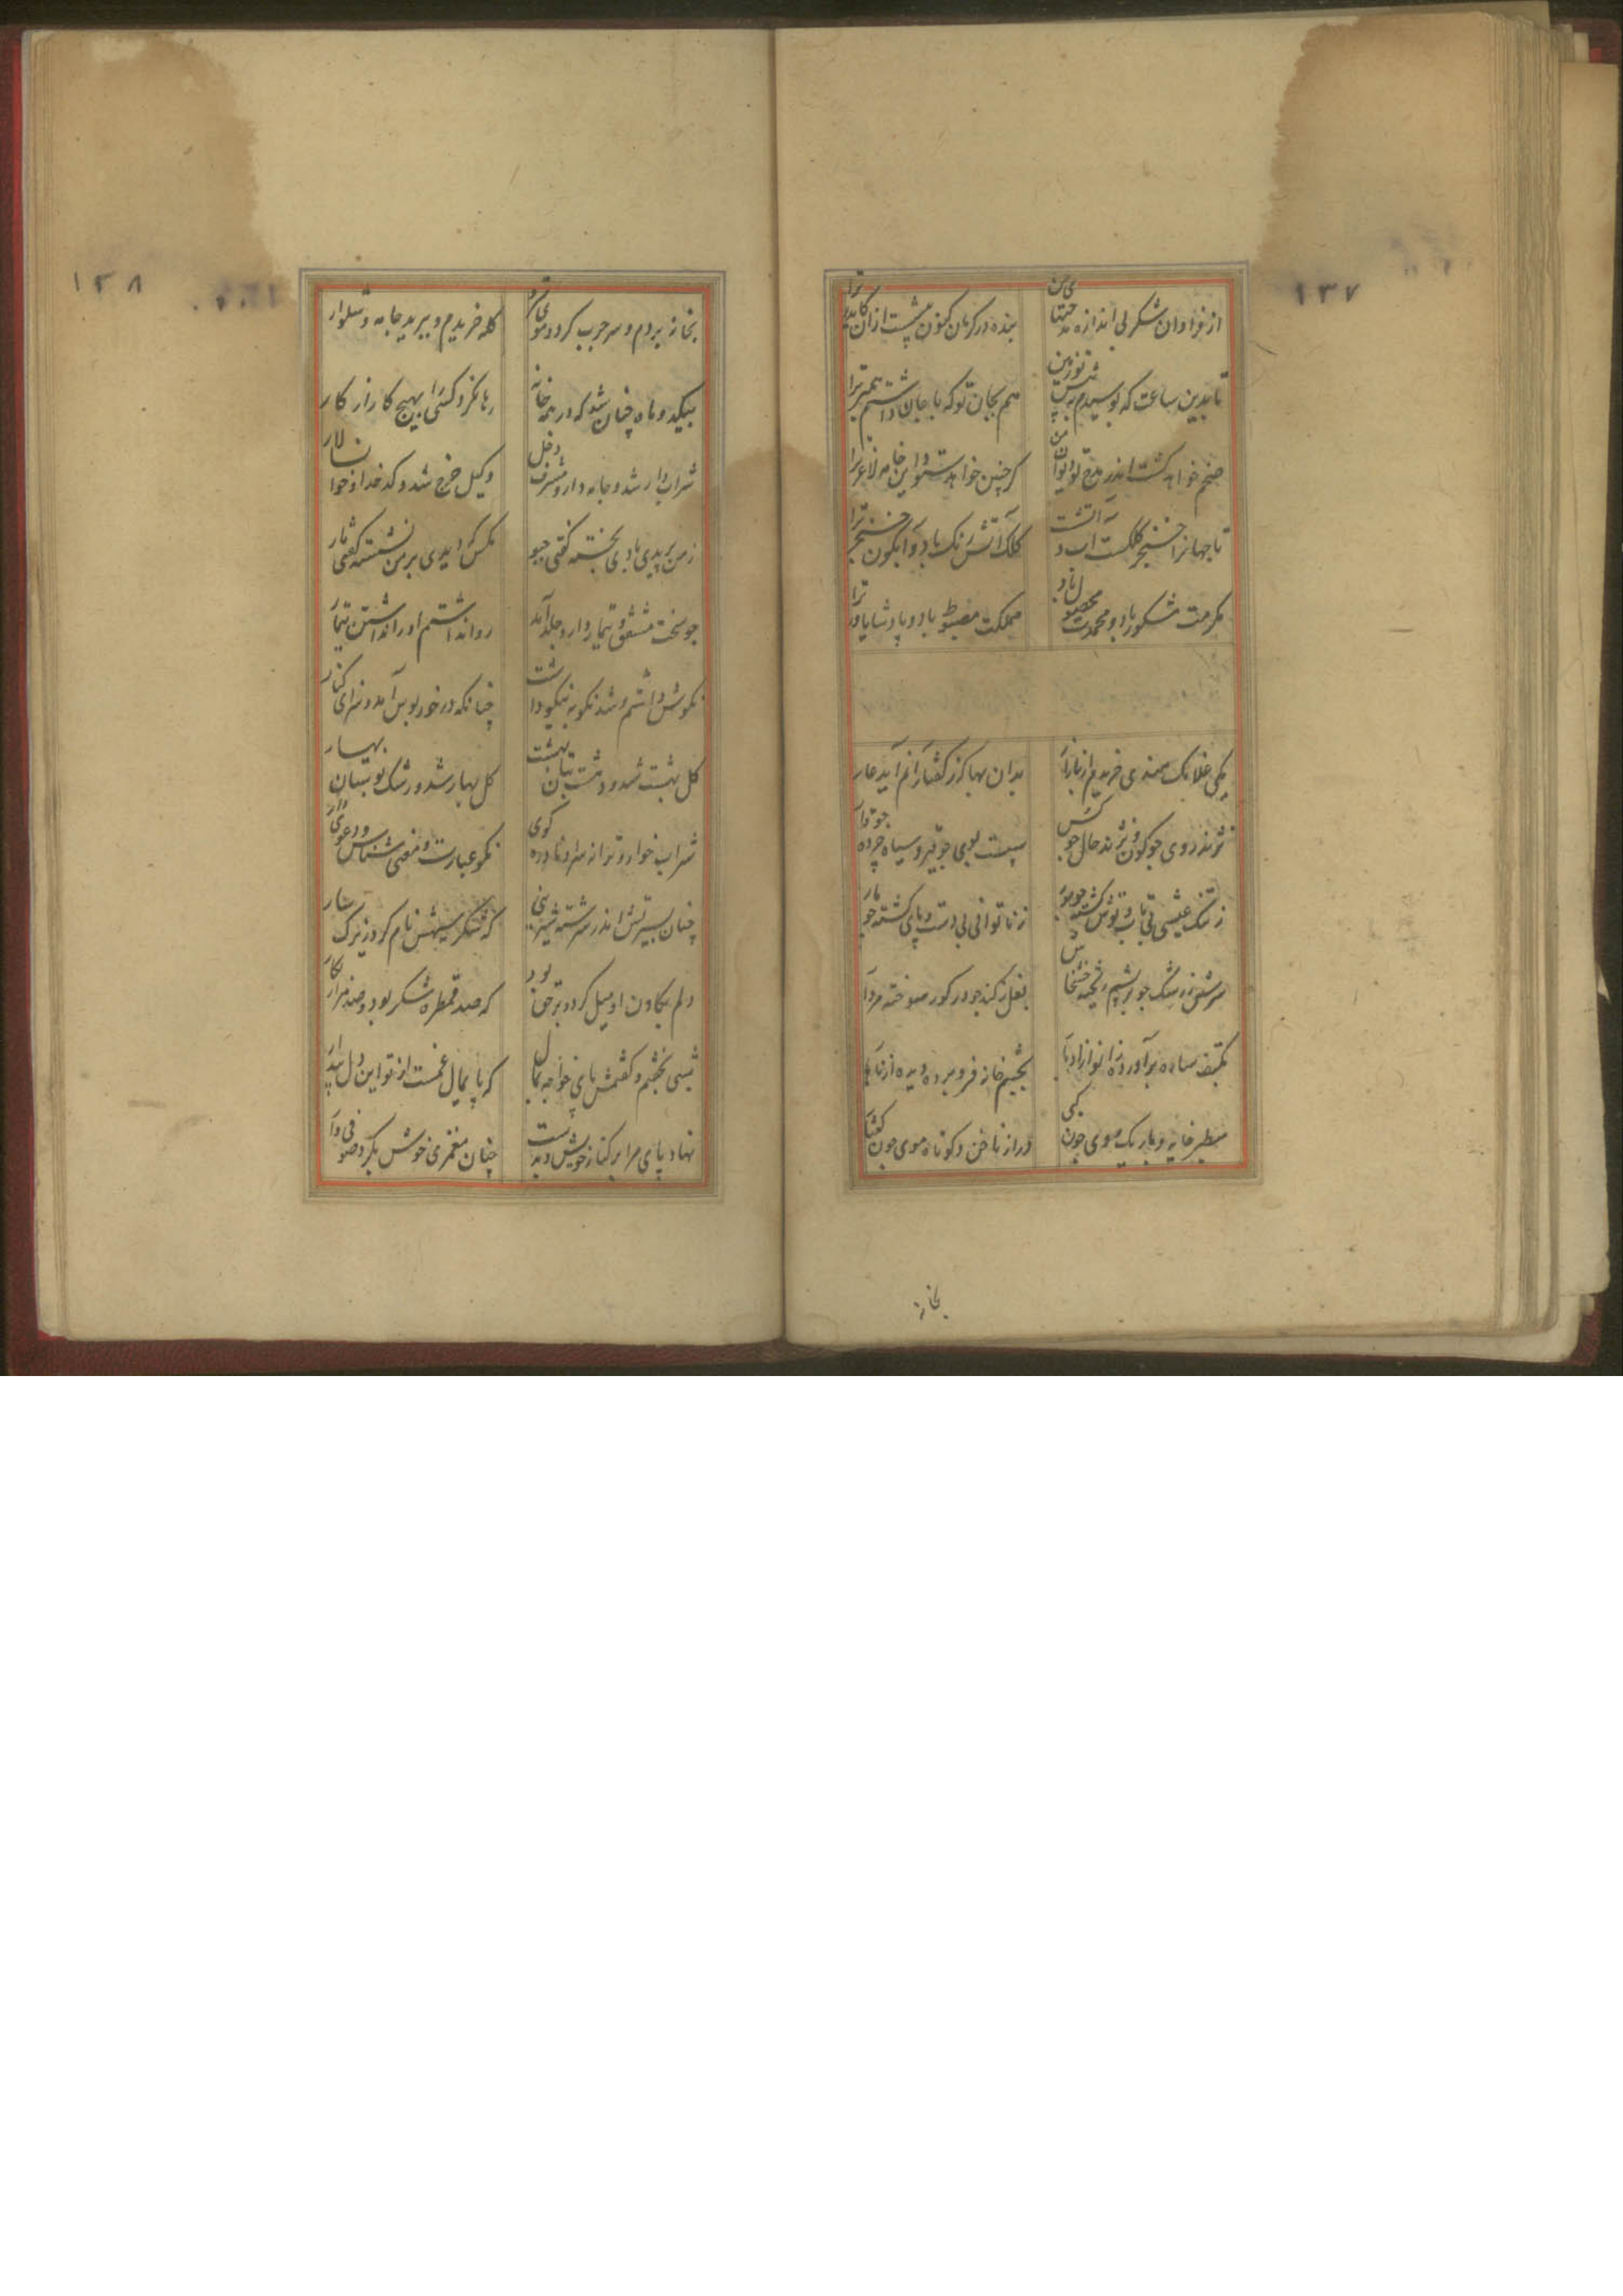 ۱۳۷
از فراوان شکر بی اندازه مدحتهای من
بنده در کرمان کنون پیشت از ان کاندر ترا
تا بدین ساعت که بوسیدم به پیش تو زمین
هم بجان تو که با جان داشتم همبر ترا
ضخم خواهد گشت اندر مدح تو دیوان من
گر چنین خواهد ستود این خامه لاغر ترا
تا جهانرا خنجر و کلکست آب و آتشت
کلک آتش رنگ باد و آبگون خنجر ترا
مکرمت مشکور باد و محمدت محصول باد
مملکت مضبوط باد و پادشا یاور ترا
یکی غلامک هندی خریدم از بازار
بدان بها که ز گفتار آنم آید عار
نژند روی چو گون و نژند حال چو کس
سپست بوی چو قیر و سیاه چرده چو قار
ز تنک عیشی بی تاب و توش گشته چو مور
ز ناتوانی بی دست و پای گشته چو مار
بکتف ساده برآورده زانو از ادبار
بچشم خانه فرو برده دیده از تیمار
سطبر خایه و باریک موی چون کپی
دراز ناخن و کوتاه موی چون کفتار
بخانه
۱۳۸
بخانه بردم و سر چرب کرد و موی سترد
کله خریدم و ببرید جامه و شلوار
بیکد و ماه چنان شد که در همه خانه
رها نکرد کسی را بهیچ کار از کار
شراب دار شد و جامه دار و مشرف دخل
وکیل خرج شد و کدخدا و خوانسالار
ز من بریدی بادی بجسته گفتی جیو
مگس دیدی بر من نشسته گفتی مار
چو سخت مشفق و تیماردار و جلد آمد
روا نداشتم او را نداشتن تیمار
نکوش داشتم و شد نکو به نیکو داشت
چنانکه در خور بوس آمد و سزای کنار
گل بهشت شد و رشک بتان بهشت
گل بهار شد و رشک بوستان بهار
شراب خوار و ترانه سرا و نادره گوی
نکو عبارت و معنی شناس و دعوی دار
چنان بسیرتش اندر سرشته شیرینی
که شکر سیهش نام کرد زیرک سار
دلم بگادن او میل کرد و بر حق بود
که صد قمطره شکر بود و صد هزار نگار
شبی بخفتم و گفتمش پای خواجه بمال
که پایمال غمست از تو این دل بیدار
نهاد پای مرا بر کنار خویش و بدست
چنان مغمزی خوش بکرد صوفی وار